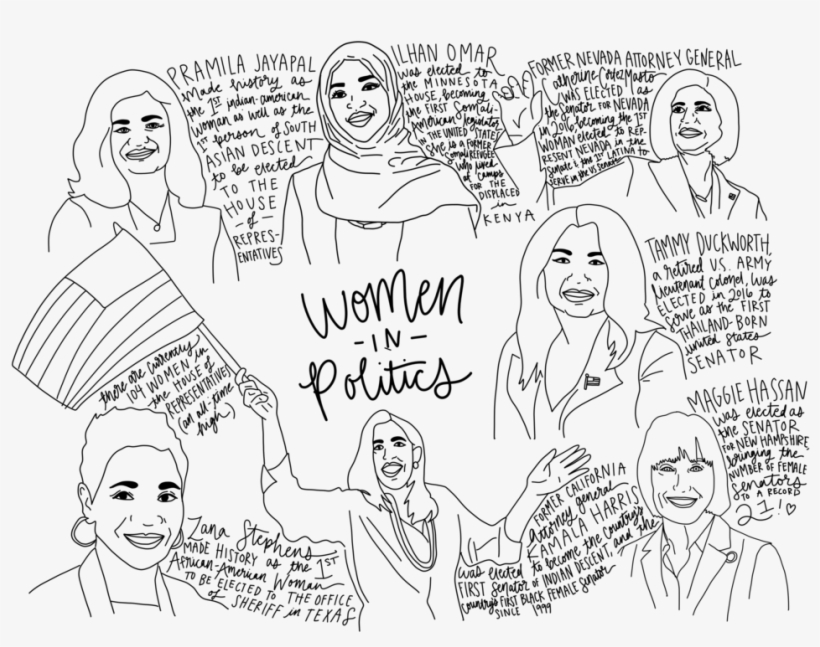 PRAMILA JAYAPAL
made history as
the 1ST indian-american
woman as well as the
1ST person of SOUTH
ASIAN DESCENT
to be elected
TO THE
HOUSE
-of-
REPRES-
ENTATIVES
ILHAN OMAR
was elected to
the MINNESOTA
HOUSE, becoming
the FIRST Somali-
American legislator
in THE UNITED STATES
She is a FORMER
Somali REFUGEE
who lived
at camps
FOR THE
DISPLACED
in
KENYA
FORMER NEVADA ATTORNEY GENERAL
Catherine Cortez Masto
WAS ELECTED as
the Senator FOR NEVADA
in 2016, becoming the 1ST
WOMAN elected to REP-
RESENT NEVADA in the
Senate & the 1ST LATINA to
SERVE in the US Senate
TAMMY DUCKWORTH,
a retired U.S. ARMY
lieutenant colonel, was
ELECTED in 2016 to
serve as the FIRST
THAILAND-BORN
united states
SENATOR
women
- IN -
Politics
there are currently
104 WOMEN in
the HOUSE of
REPRESENTATIVES
(an all-time
high.)
MAGGIE HASSAN
was elected as
the SENATOR
FOR NEW HAMPSHIRE,
bringing the
NUMBER OF FEMALE
senators
TO A RECORD
21!
Zana Stephens
MADE HISTORY as the 1ST
African-American Woman
TO BE ELECTED TO THE OFFICE
of SHERIFF in TEXAS
FORMER CALIFORNIA
Attorney general
KAMALA HARRIS
was elected to become the country's
FIRST Senator of INDIAN DESCENT, and the
country's FIRST BLACK FEMALE Senator
SINCE 1999